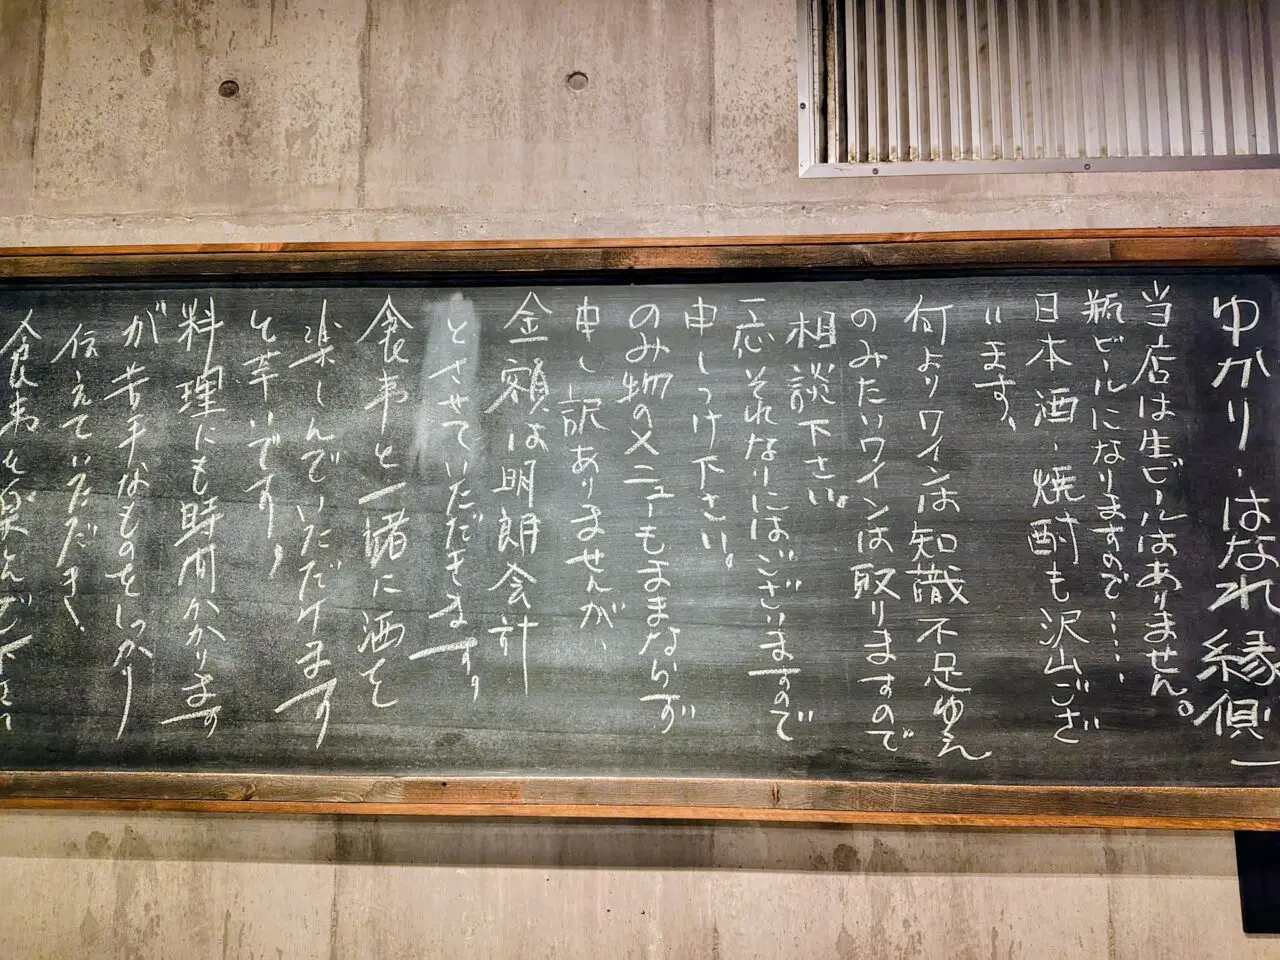 ゆかり・はなれ縁側
当店は生ビールはありません。
瓶ビールになりますので……
日本酒・焼酎も沢山ござ
います、
何よりワインは知識不足ゆえ
のみたいワインは取りますので
相談下さい。
一応それなりにはございますので
申しつけ下さい。
のみ物のメニューもままならず
申し訳ありませんが、
金額は明朗会計
とさせていただきます。
食事と一緒に酒を
楽しんでいただけます
と幸いです。
料理にも時間かかります
が苦手なものをしっかり
伝えていただき、
食事を楽しんで下さい